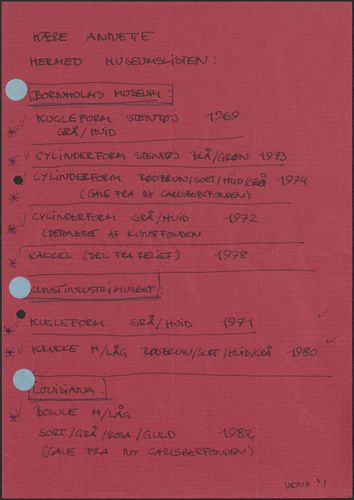 KÆRE ANNETTE
HERMED MUSEUMSLISTEN:
BORNHOLMS MUSEUM:
KUGLEFORM STENTØJ 1969
GRÅ/HVID
CYLINDERFORM STENTØJ BLÅ/GRØN 1973
CYLINDERFORM RØDBRUN/SORT/HVID/GRÅ 1974
(GAVE FRA NY CARLSBERGFONDEN)
CYLINDERFORM GRÅ/HVID 1972
(DEPONERET AF KUNSTFONDEN
KAKKEL (DEL FRA RELIEF) 1978
KUNSTINDUSTRIMUSEET:
KUGLEFORM GRÅ/HVID 1971
KRUKKE M/LÅG RØDBRUN/SORT/HVID/GRÅ 1980
LOUISIANA:
BOWLE M/LÅG
SORT/GRÅ/ROSA/GULD 1982
(GAVE FRA NY CARLSBERFONDEN)
VEND!!